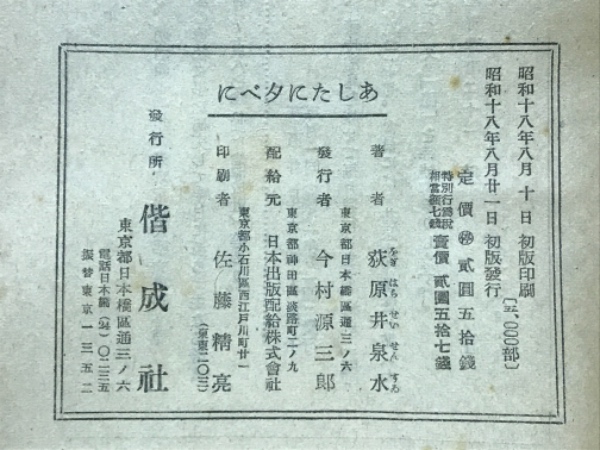 昭和十八年八月 十日 初版印刷
昭和十八年八月廿一日 初版發行
〔三、〇〇〇部〕
定價 ㊕ 貳圓五拾錢
特別行爲税相當額七錢 賣價 貳圓五拾七錢
あしたにタベに
著者 荻原井泉水
をぎ はら せい せん すゐ
東京都日本橋區通三ノ六
發行者 今村源三郎
東京都神田區淡路町二ノ九
配給元 日本出版配給株式會社
東京都小石川區西江戸川町廿一
印刷者 佐藤精亮
(東東二〇三)
發行所 偕成社
東京都日本橋區通三ノ六
電話日本橋(24)〇二三五
振替東京一三五二